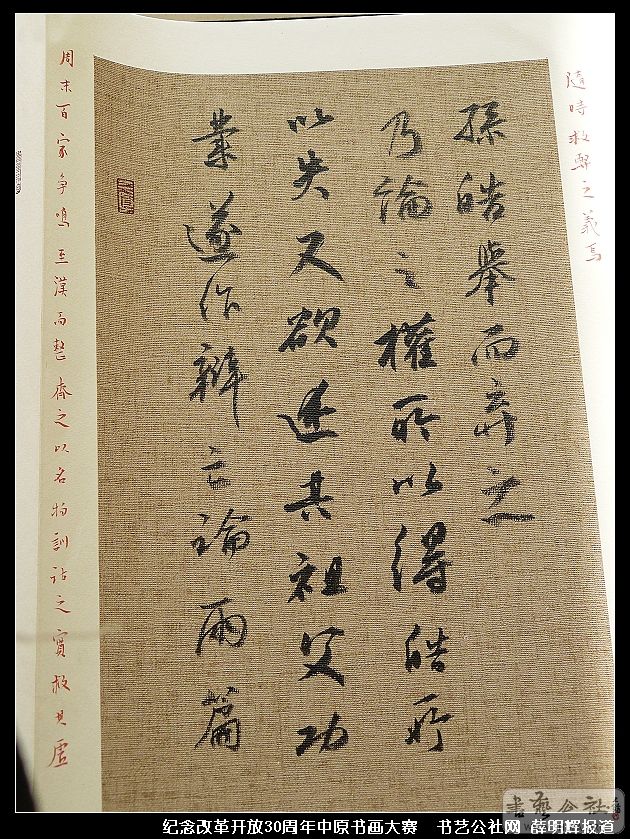 隨時救弊之義焉
孫皓舉而弃之
乃論之權所以得皓所
以失又欲述其祖父功
業遂作辯亡論兩篇
周末百家争鳴至漢而整齊之以名物訓詁之實救其虛
書藝公社
纪念改革开放30周年中原书画大赛 书艺公社网 薛明辉报道